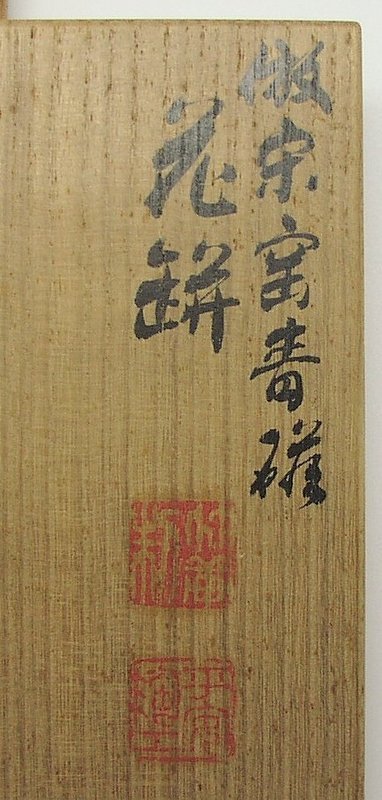 倣宋窯青磁
花缾